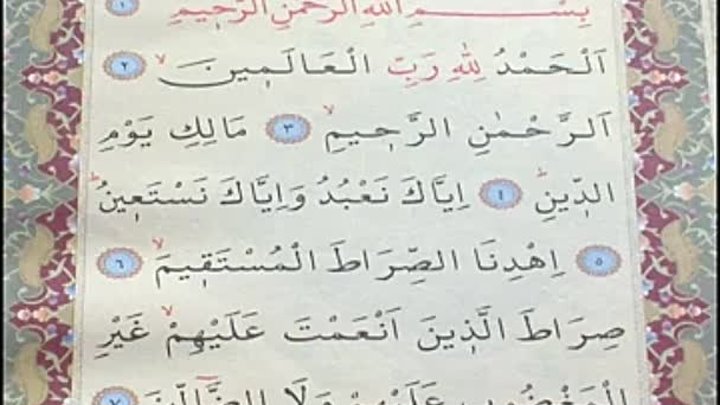 بِسْمِ اللهِ الرَّحْمٰنِ الرَّح۪يمِ ١
اَلْحَمْدُ لِلّٰهِ رَبِّ الْعَالَم۪ينَۙ ٢
اَلرَّحْمٰنِ الرَّح۪يمِۙ ٣ مَالِكِ يَوْمِ
الدّ۪ينِۜ ٤ اِيَّاكَ نَعْبُدُ وَاِيَّاكَ نَسْتَع۪ينُۜ
٥ اِهْدِنَا الصِّرَاطَ الْمُسْتَق۪يمَۙ ٦
صِرَاطَ الَّذ۪ينَ اَنْعَمْتَ عَلَيْهِمْۙ غَيْرِ
الْمَغْضُوبِ عَلَيْهِمْ وَلَا الضَّٓالّ۪ينَ ٧